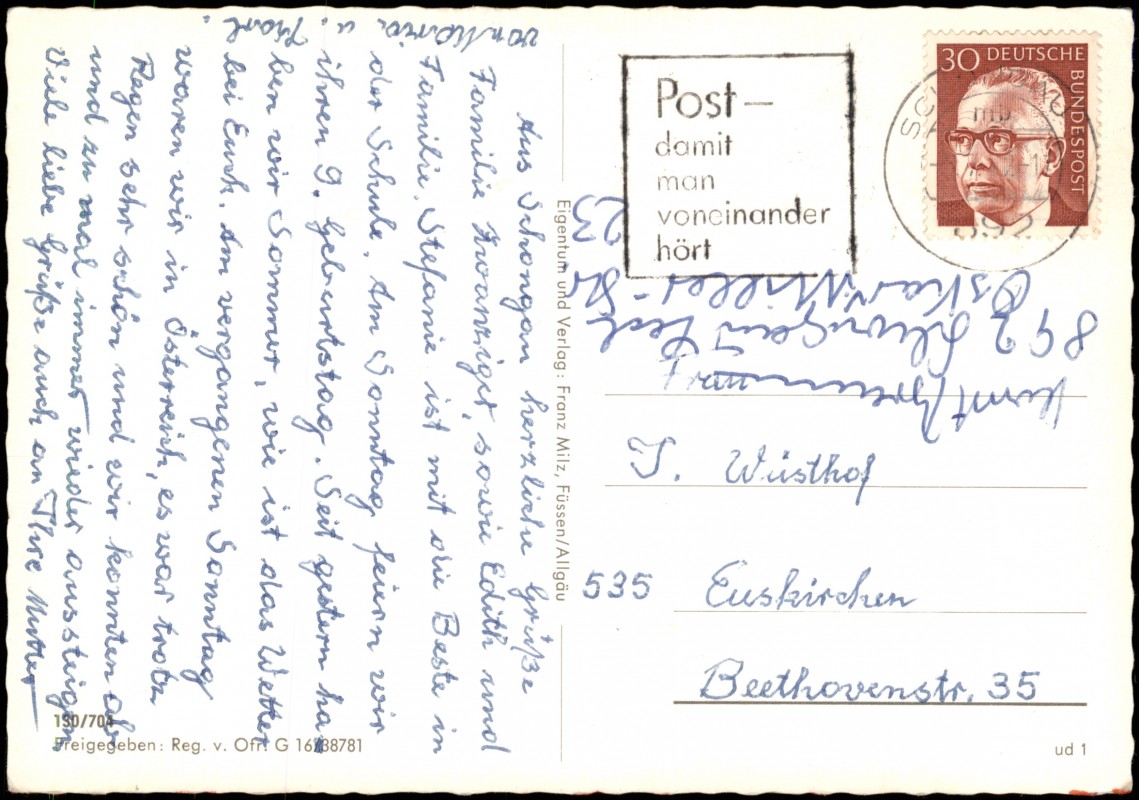 Aus Schongau herzliche Grüße
Familie Zwanziger, sowie Edith und
Familie. Stefanie ist mit die Beste in
der Schule. Am Sonntag feiern wir
ihren 9. Geburtstag. Seit gestern ha-
ben wir Sommer, wie ist das Wetter
bei Euch. Am vergangenen Sonntag
waren wir in Österreich, es war trotz
Regen sehr schön und wir konnten ab
und zu mal immer wieder aussteigen.
Viele liebe Grüße auch an Ihre Mutter
von Maria u.
130/704
Freigegeben: Reg. v. Ofr. G 16/38781
Eigentum und Verlag: Franz Milz, Füssen/Allgäu
Post–
damit
man
voneinander
hört
30 DEUTSCHE
BUNDESPOST
mb
892
892 Schongau
Oskar-Miller-Str
23
Frau
J. Wüsthof
535 Euskirchen
Beethovenstr. 35
ud 1